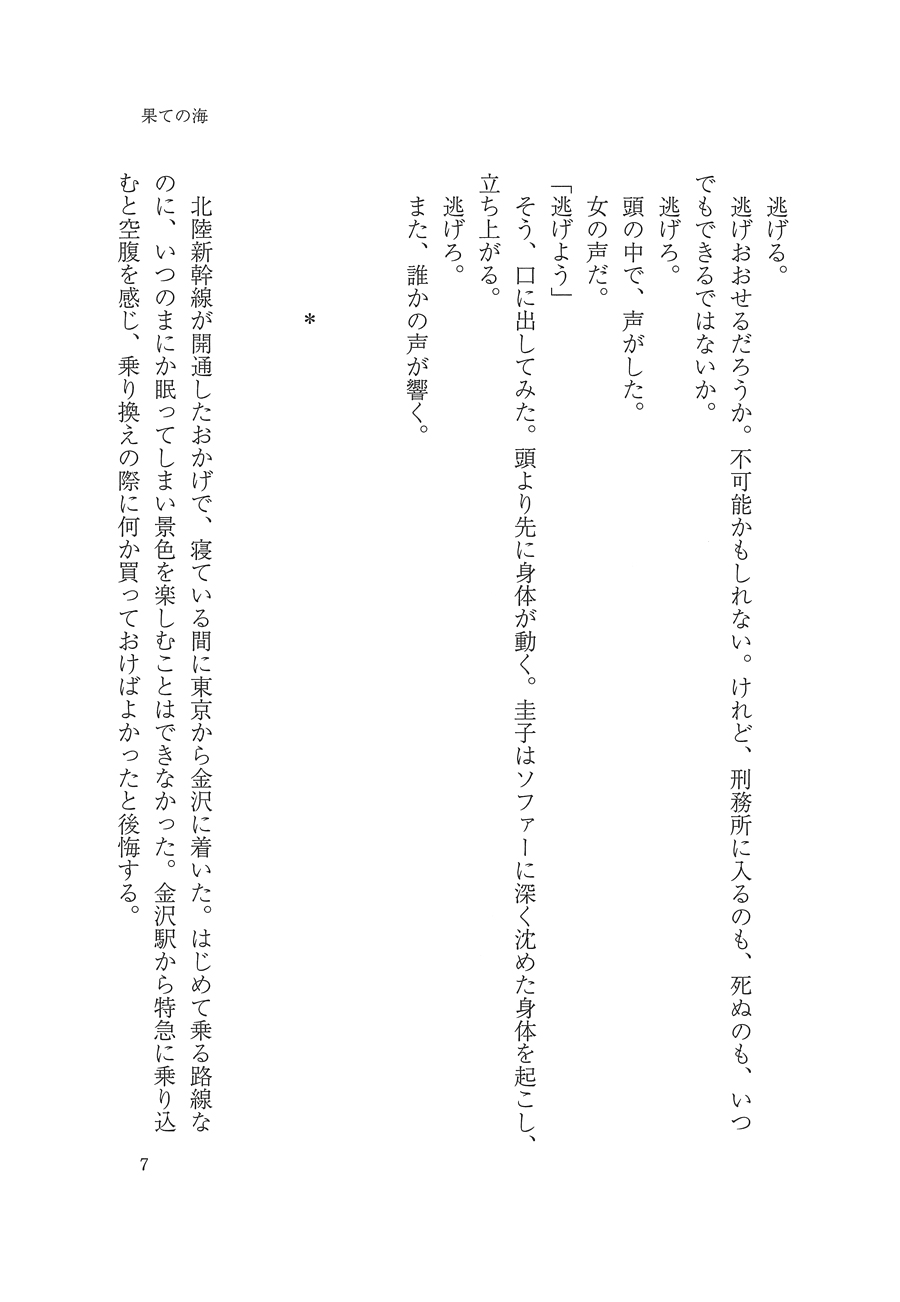 果ての海
逃げる。
逃げおおせるだろうか。不可能かもしれない。けれど、刑務所に入るのも、死ぬのも、いつ
でもできるではないか。
逃げろ。
頭の中で、声がした。
女の声だ。
「逃げよう」
そう、口に出してみた。頭より先に身体が動く。圭子はソファーに深く沈めた身体を起こし、
立ち上がる。
逃げろ。
また、誰かの声が響く。
*
北陸新幹線が開通したおかげで、寝ている間に東京から金沢に着いた。はじめて乗る路線な
のに、いつのまにか眠ってしまい景色を楽しむことはできなかった。金沢駅から特急に乗り込
むと空腹を感じ、乗り換えの際に何か買っておけばよかったと後悔する。
7